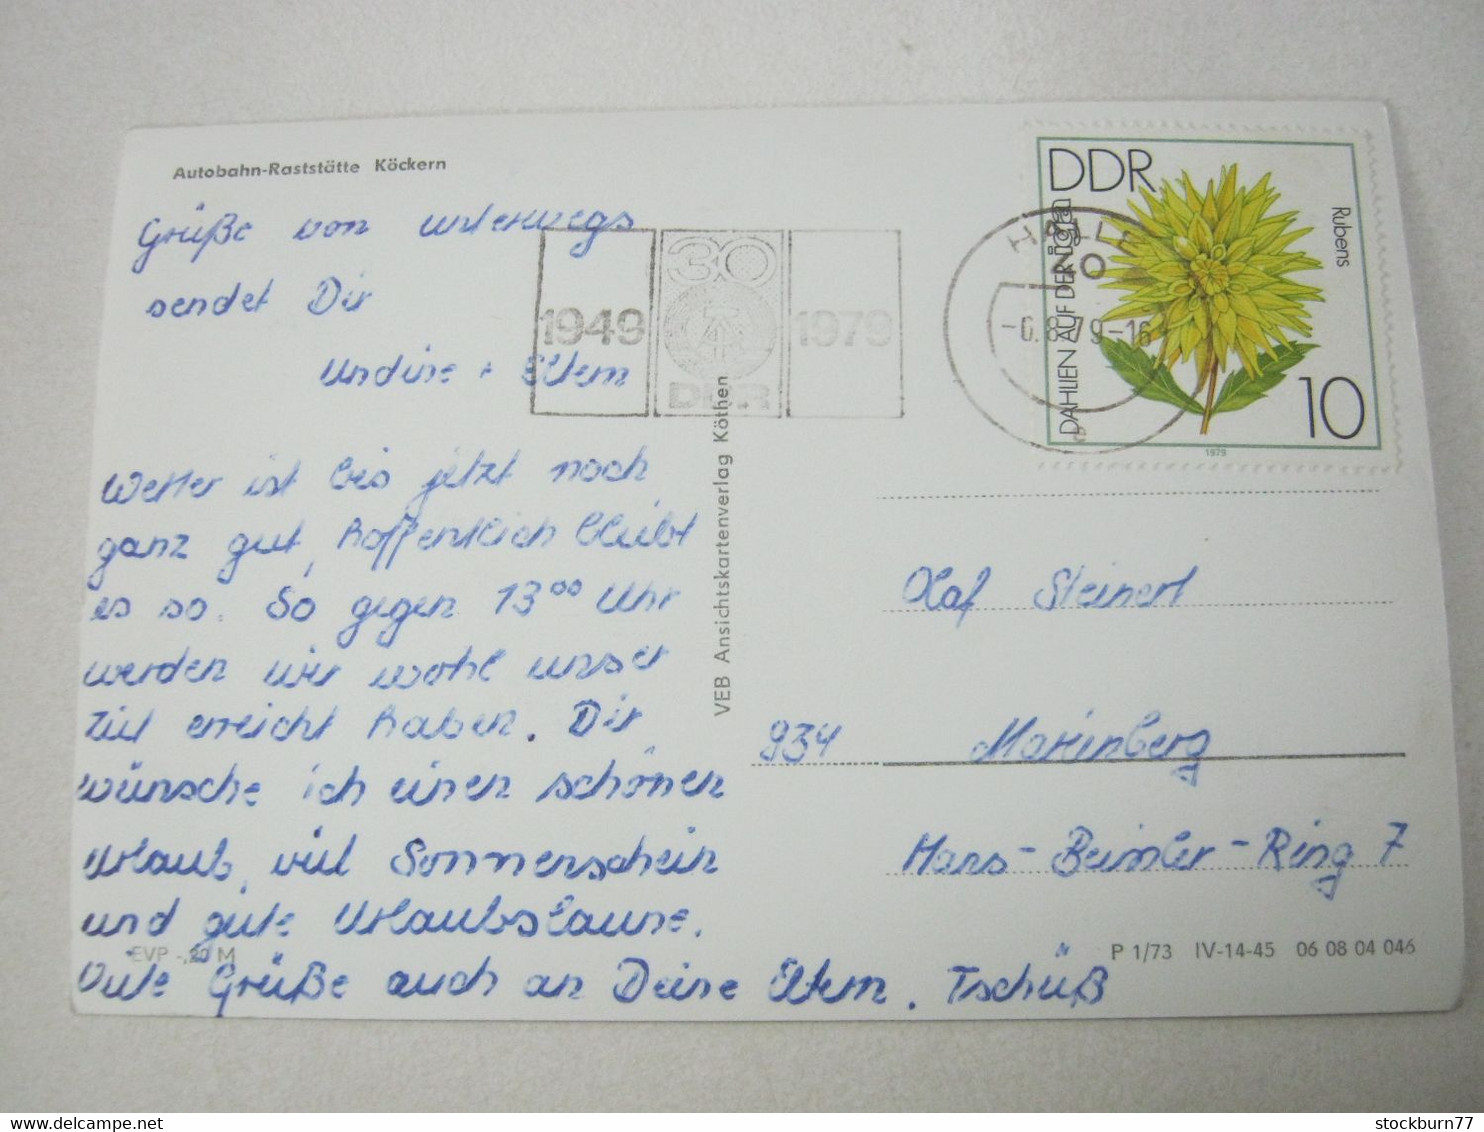 Autobahn-Raststätte Köckern
Grüße von unterwegs
sendet Dir
Undine + Eltern
Wetter ist bis jetzt noch
ganz gut, hoffentlich bleibt
es so. So gegen 13⁰⁰ Uhr
werden wir wohl unser
Ziel erreicht haben. Dir
wünsche ich einen schönen
Urlaub, viel Sonnenschein
und gute Urlaubslaune.
Viele Grüße auch an Deine Eltern. Tschüß
EVP -,20 M
VEB Ansichtskartenverlag Köthen
1949 30 DDR 1979
HALLE
40
-6.8.79-16
DDR
DAHLIEN AUF DER iga
Rubens
10
1979
Olaf Steinert
934 Marienberg
Hans-Beimler-Ring 7
P 1/73 IV-14-45 06 08 04 046
stockburn77